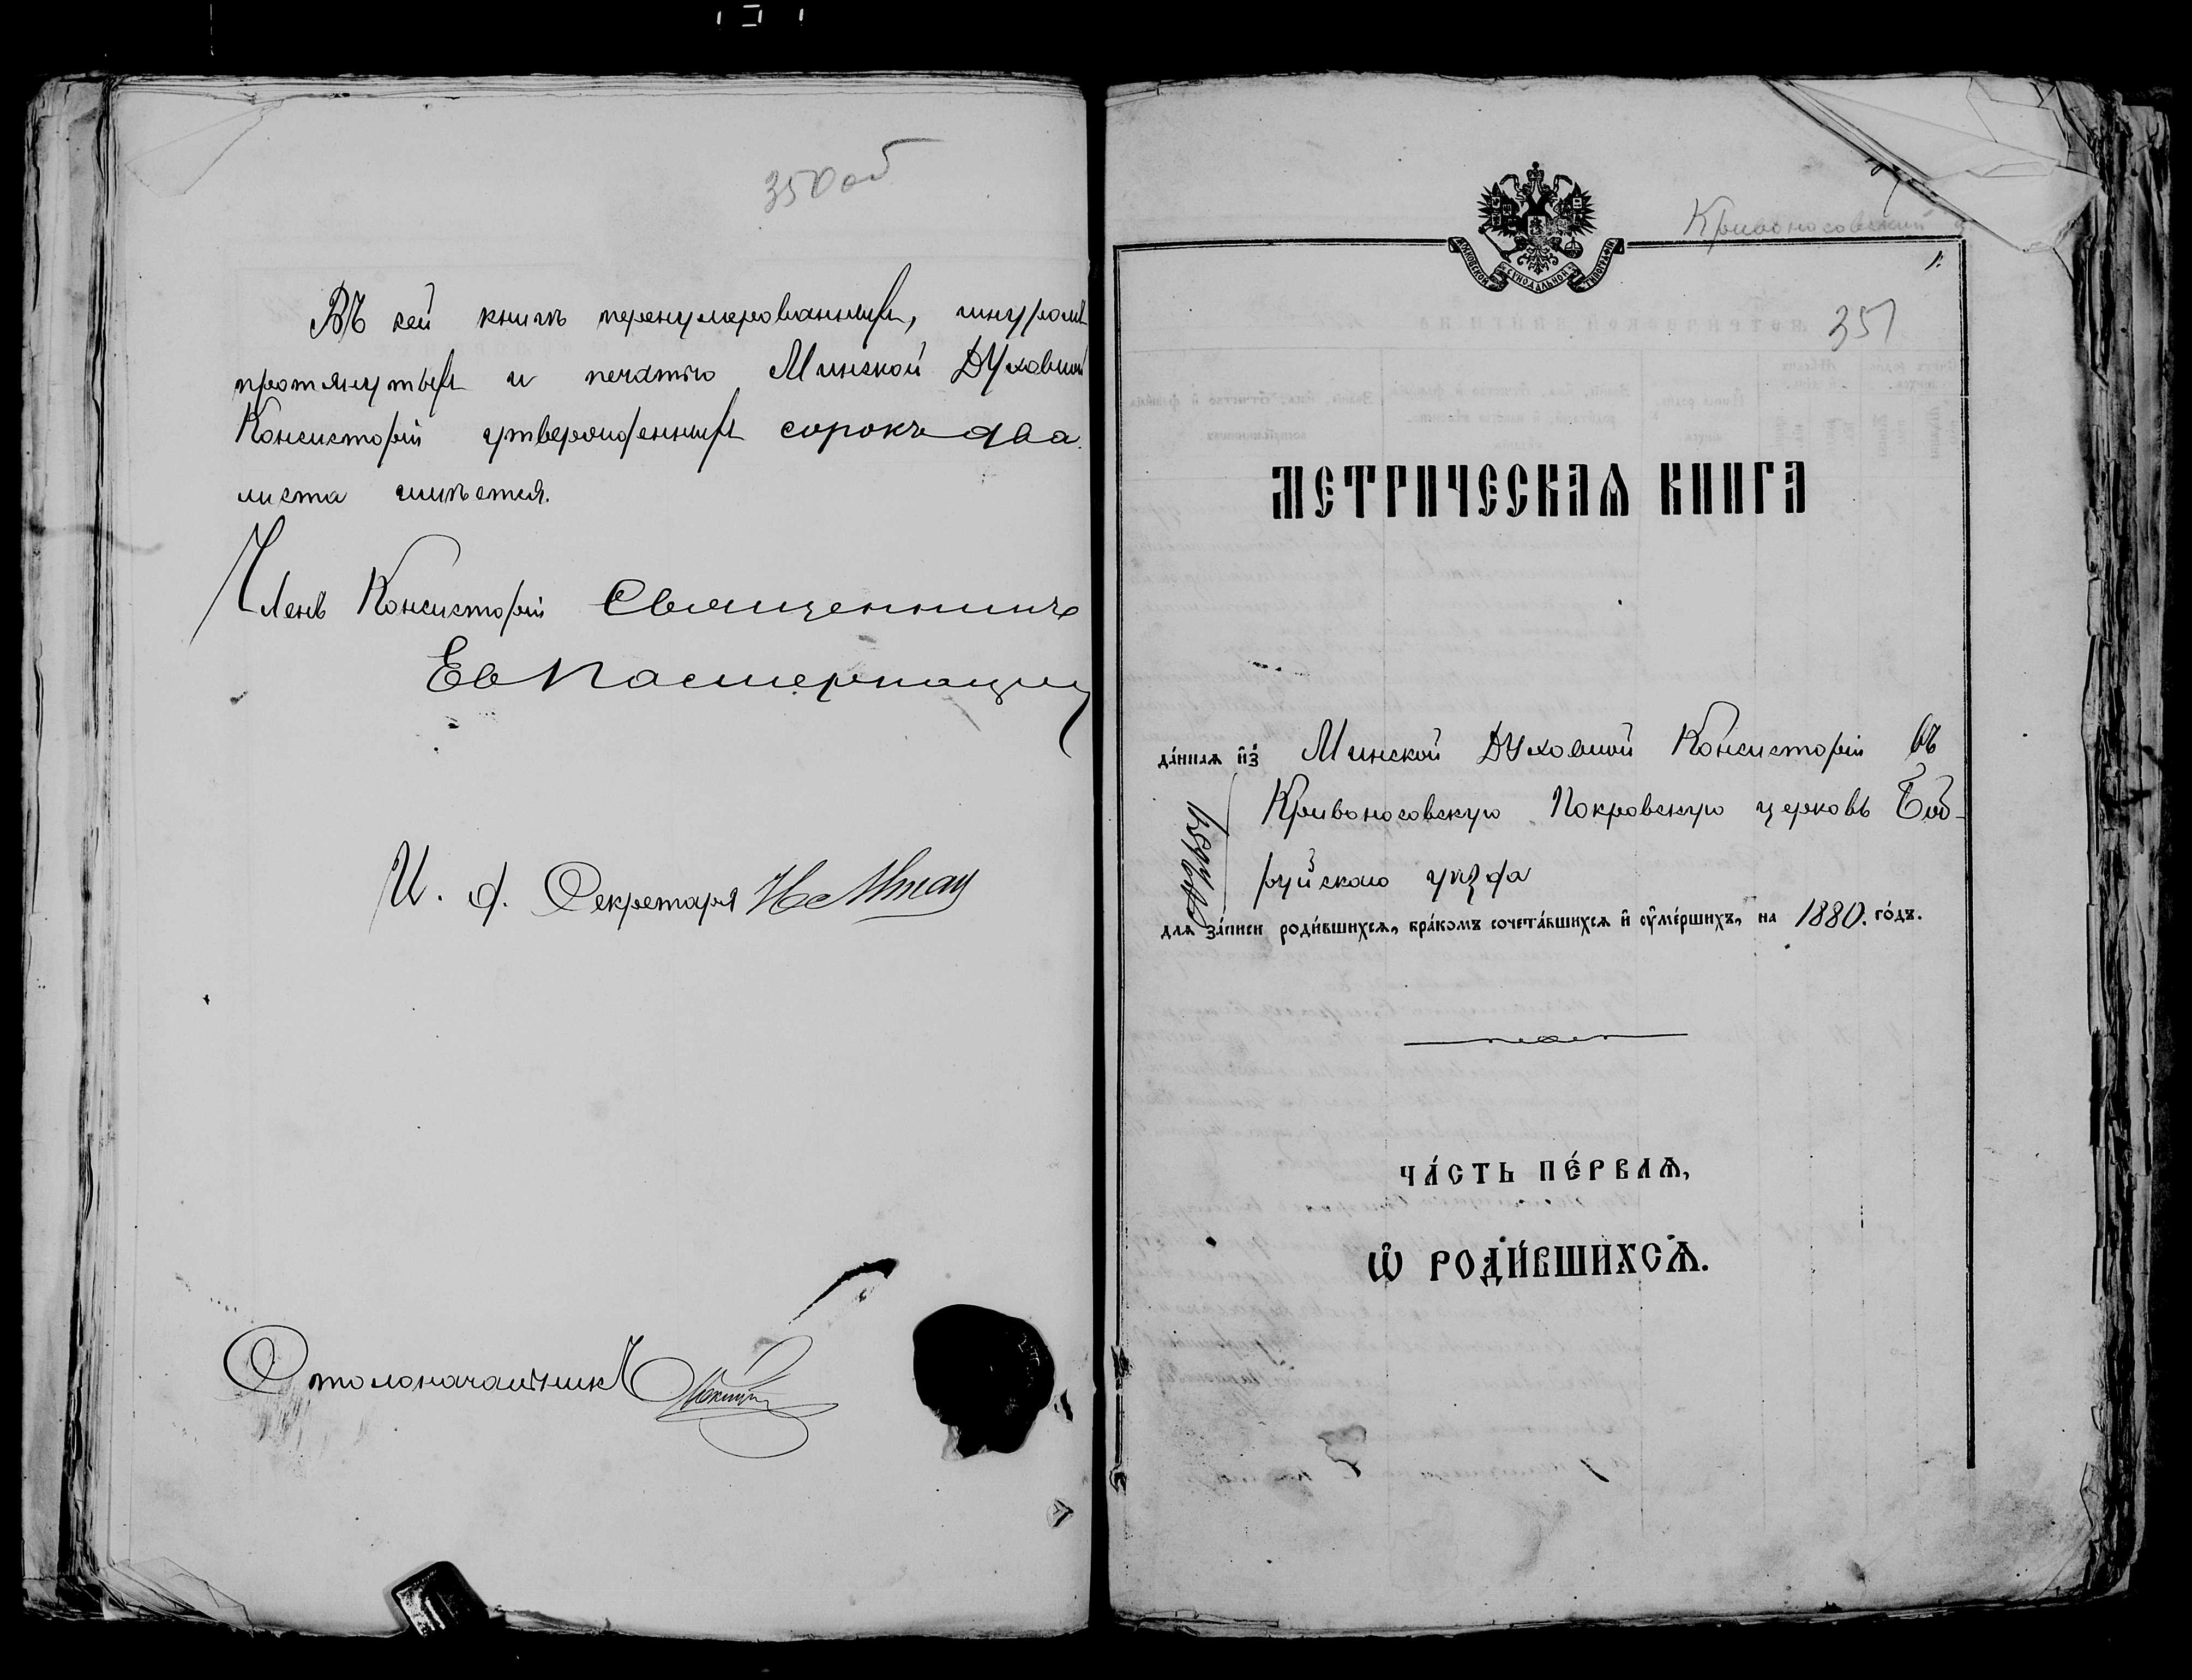 350 об
Въ сей книгѣ перенумерованныхъ, шнуромъ
протянутыхъ и печатью Минской Духовной
Консисторіи утвержденныхъ сорокъ два
листа имѣется.
Членъ Консисторіи Священникъ
Ев Пастернацкій
И. д. Секретаря
Столоначальникъ
Кривоносовский
1.
351
МОСКОВСКОЙ СѴНОДАЛЬНОЙ ТИПОГРАФІИ
МЕТРИЧЕСКАѦ КНИГА
да́ннаѧ и҆з̾ Минской Духовной Консисторіи въ
Кривоносовскую Покровскую церковь Боб-
руйскаго уѣзда
длѧ за́писи роди́вшихсѧ, бра́комъ сочета́вшихсѧ и҆ ѹ҆ме́ршихъ, на 1880. го́дъ.
ЧА́СТЬ ПЕ́РВАѦ,
Ѡ҆ РОДИ́ВШИХСѦ.